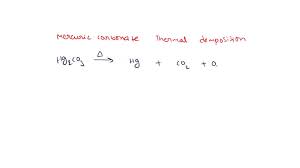 Mercuric carbonate thermal demposition
Hg₂CO₃ Δ⟶ Hg + CO₂ + O